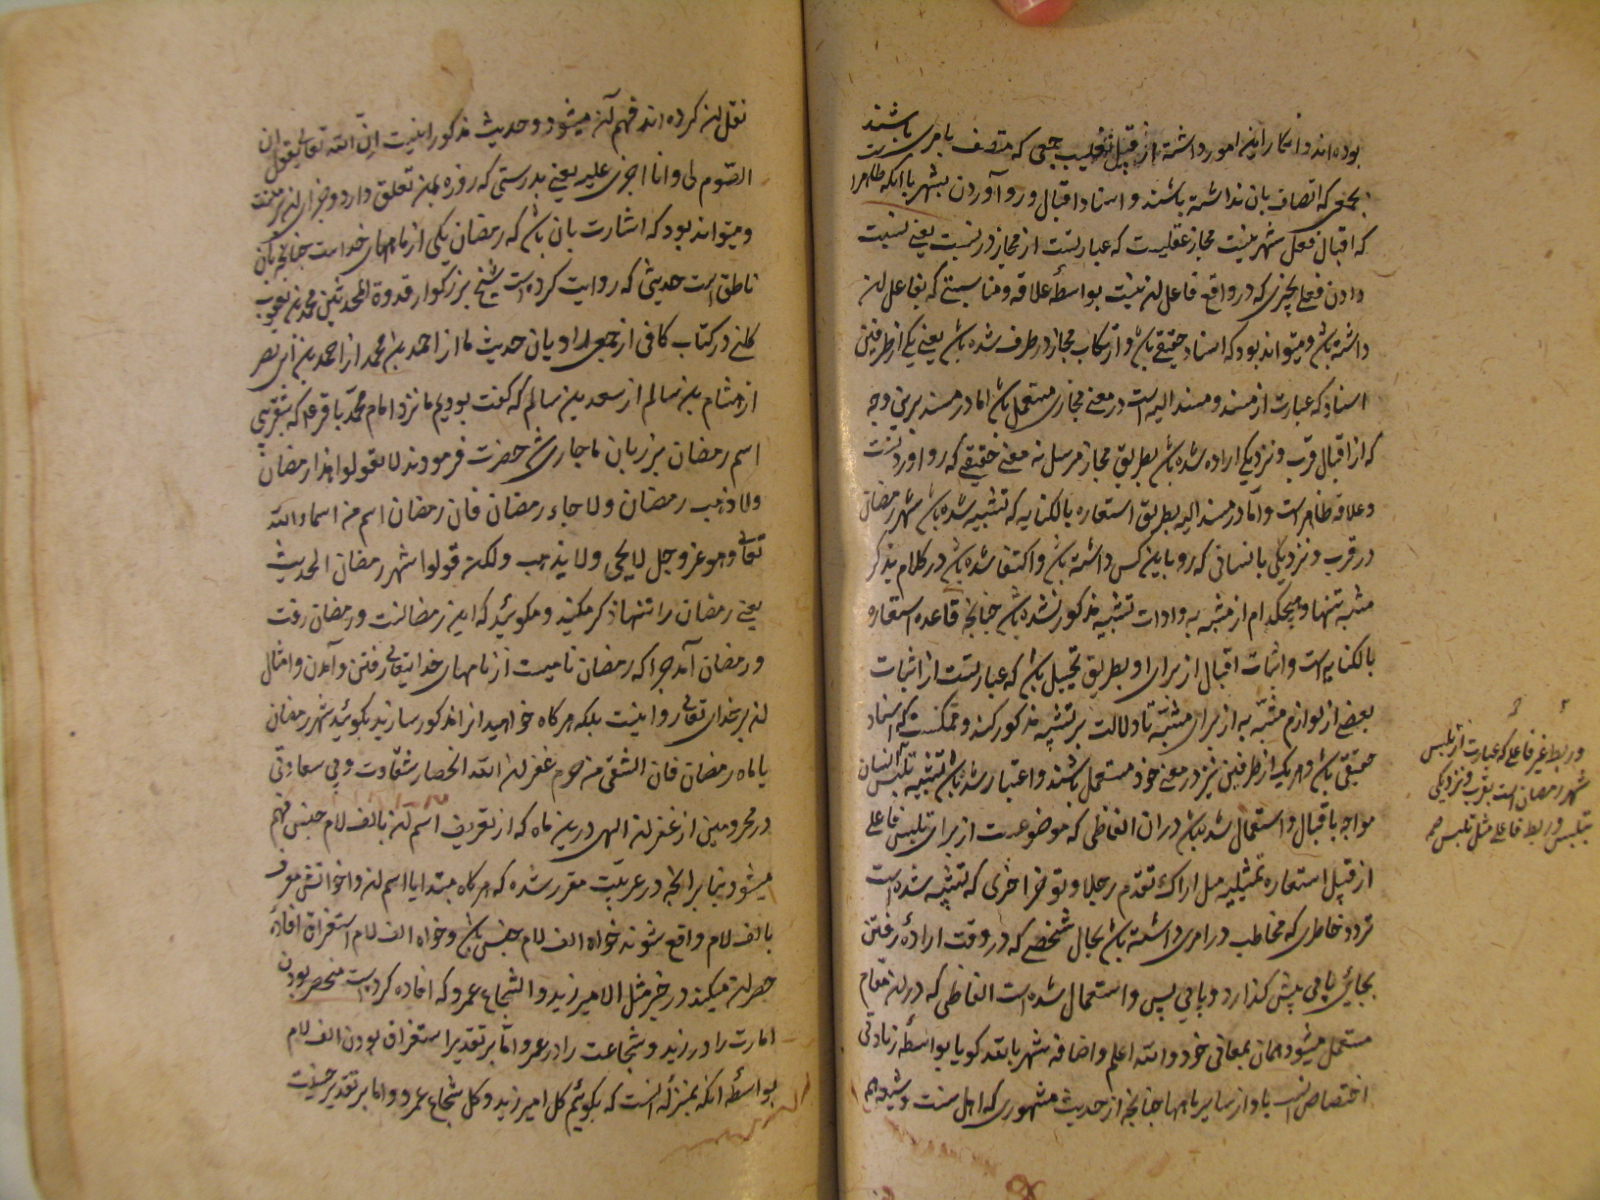 بوده‌اند و انکار این امور داشته از قبیل تغلیب جمعی که متصف بامری باشند
بجمعی که اتصاف بان نداشته باشند و اسناد اقبال و رو آوردن بشهر با آنکه ظاهرا
که اقبال فعل شهر نیست مجاز عقلیست که عبارتست از مجاز در نسبت یعنی نسبت
دادن فعلی بچیزی که در واقع فاعل ان نیست بواسطهٔ علاقه و مناسبتی که بفاعل ان
داشته باشد و میتواند بود که اسناد حقیقی باشد و ارتکاب مجاز در طرف شده باشد یعنی یکی از طرفین
اسناد که عبارت از مسند و مسند الیه است در معنی مجازی مستعمل باشد اما در مسند برین وجه
که از اقبال قرب و نزدیکی اراده شده باشد بطریق مجاز مرسل نه معنی حقیقی که رو اوردنست
و علاقه ظاهر است و اما در مسند الیه بطریق استعاره بالکنایه که تشبیه شده باشد شهر رمضان
در قرب و نزدیکی بانسانی که رو باین کس داشته باشد و اکتفا شده باشد در کلام بذکر
مشبه تنها و هیچکدام از مشبه به و ادات تشبیه مذکور نشده باشد چنانچه قاعده استعاره
بالکنایه است و اثبات اقبال از برای او بطریق تخییل باشد که عبارتست از اثبات
بعضی از لوازم مشبه به از برای مشبه تا دلالت بر تشبیه مذکور کند و ممکنست که اسناد
حقیقی باشد و هر یک از طرفین نیز در معنی خود مستعمل باشند و اعتبار شده باشد تشبیه تلبس انسان
مواجه باقبال و استعمال شده باشد دران الفاظی که موضوعست از برای تلبس فاعلی
از قبیل استعاره تمثیلیه مثل اراک تقدم رجلا و تؤخر اخری که تشبیه شده است
تردد خاطری که مخاطب در امری داشته باشد بحال شخصی که در وقت ارادهٔ رفتن
بجائی پا می پیش گذارد و پا می پس و استعمال شده است الفاظی که در ان مقام
مستعمل میشود همان بمعانی خود و الله اعلم و اضافه شهر بالله گویا بواسطهٔ زیادتی
اختصاص انست باو از سایر ماهها چنانچه از حدیث مشهوری که اهل سنت و شیعه هم
و ربط غیر فاعلی که عبارت از تلبس
شهر رمضان است بقرب و نزدیکی
بتلبس و ربط فاعلی مثل تلبس
نقل ان کرده‌اند فهم آن میشود و حدیث مذکور اینست ان الله تعالی یقول ان
الصوم لی و انا اجزی علیه یعنی بدرستی که روزه بمن تعلق دارد و جزای ان بر منست
و میتواند بود که اشارت بان باشد که رمضان یکی از نامهای خداست چنانچه بان
ناطق است حدیثی که روایت کرده است شیخ بزرگوار قدوة المحدثین محمد بن یعقوب
کلنی در کتاب کافی از جمعی از راویان حدیث ما از احمد بن محمد از احمد بن ابی نصر
از هشام بن سالم از سعد بن سالم که گفت بودیم ما نزد امام محمد باقر ع که بتقریبی
اسم رمضان بر زبان ما جاری شد حضرت فرمودند لا تقولوا هذا رمضان
ولا ذهب رمضان ولا جاء رمضان فان رمضان اسم من اسماء الله
تعالی و هو عز و جل لا یجی ولا یذهب ولکن قولوا شهر رمضان الحدیث
یعنی رمضان را تنها ذکر مکنید و مگوئید که این رمضانست و رمضان رفت
و رمضان آمد چرا که رمضان نامیست از نامهای خدایتعالی و رفتن و آمدن و امثال
ان بر خدای تعالی روا نیست بلکه هر گاه خواهید انرا مذکور سازید بگوئید شهر رمضان
یا ماه رمضان فان الشقی من حرم غفران الله انحصار شقاوت و بی سعادتی
در محرومین از غفران الهی درین ماه که از تعریف اسم ان بالف لام جنس فهم
میشود بنا بر آنچه در عربیت مقرر شده که هر گاه مبتدا یا اسم ان و اخواتش معرف
بالف لام واقع شوند خواه الف لام جنس باشد و خواه الف لام استغراق افادهٔ
حصر ان میکند در خبر مثل الامیر زید و الشجاع عمرو که افاده کرده است منحصر بودن
امارت را در زید و شجاعت را در عمرو اما بر تقدیر استغراق بودن الف لام
بواسطهٔ انکه بمنزلهٔ انست که بگوئیم کل امیر زید و کل شجاع عمرو و اما بر تقدیر جنسیت